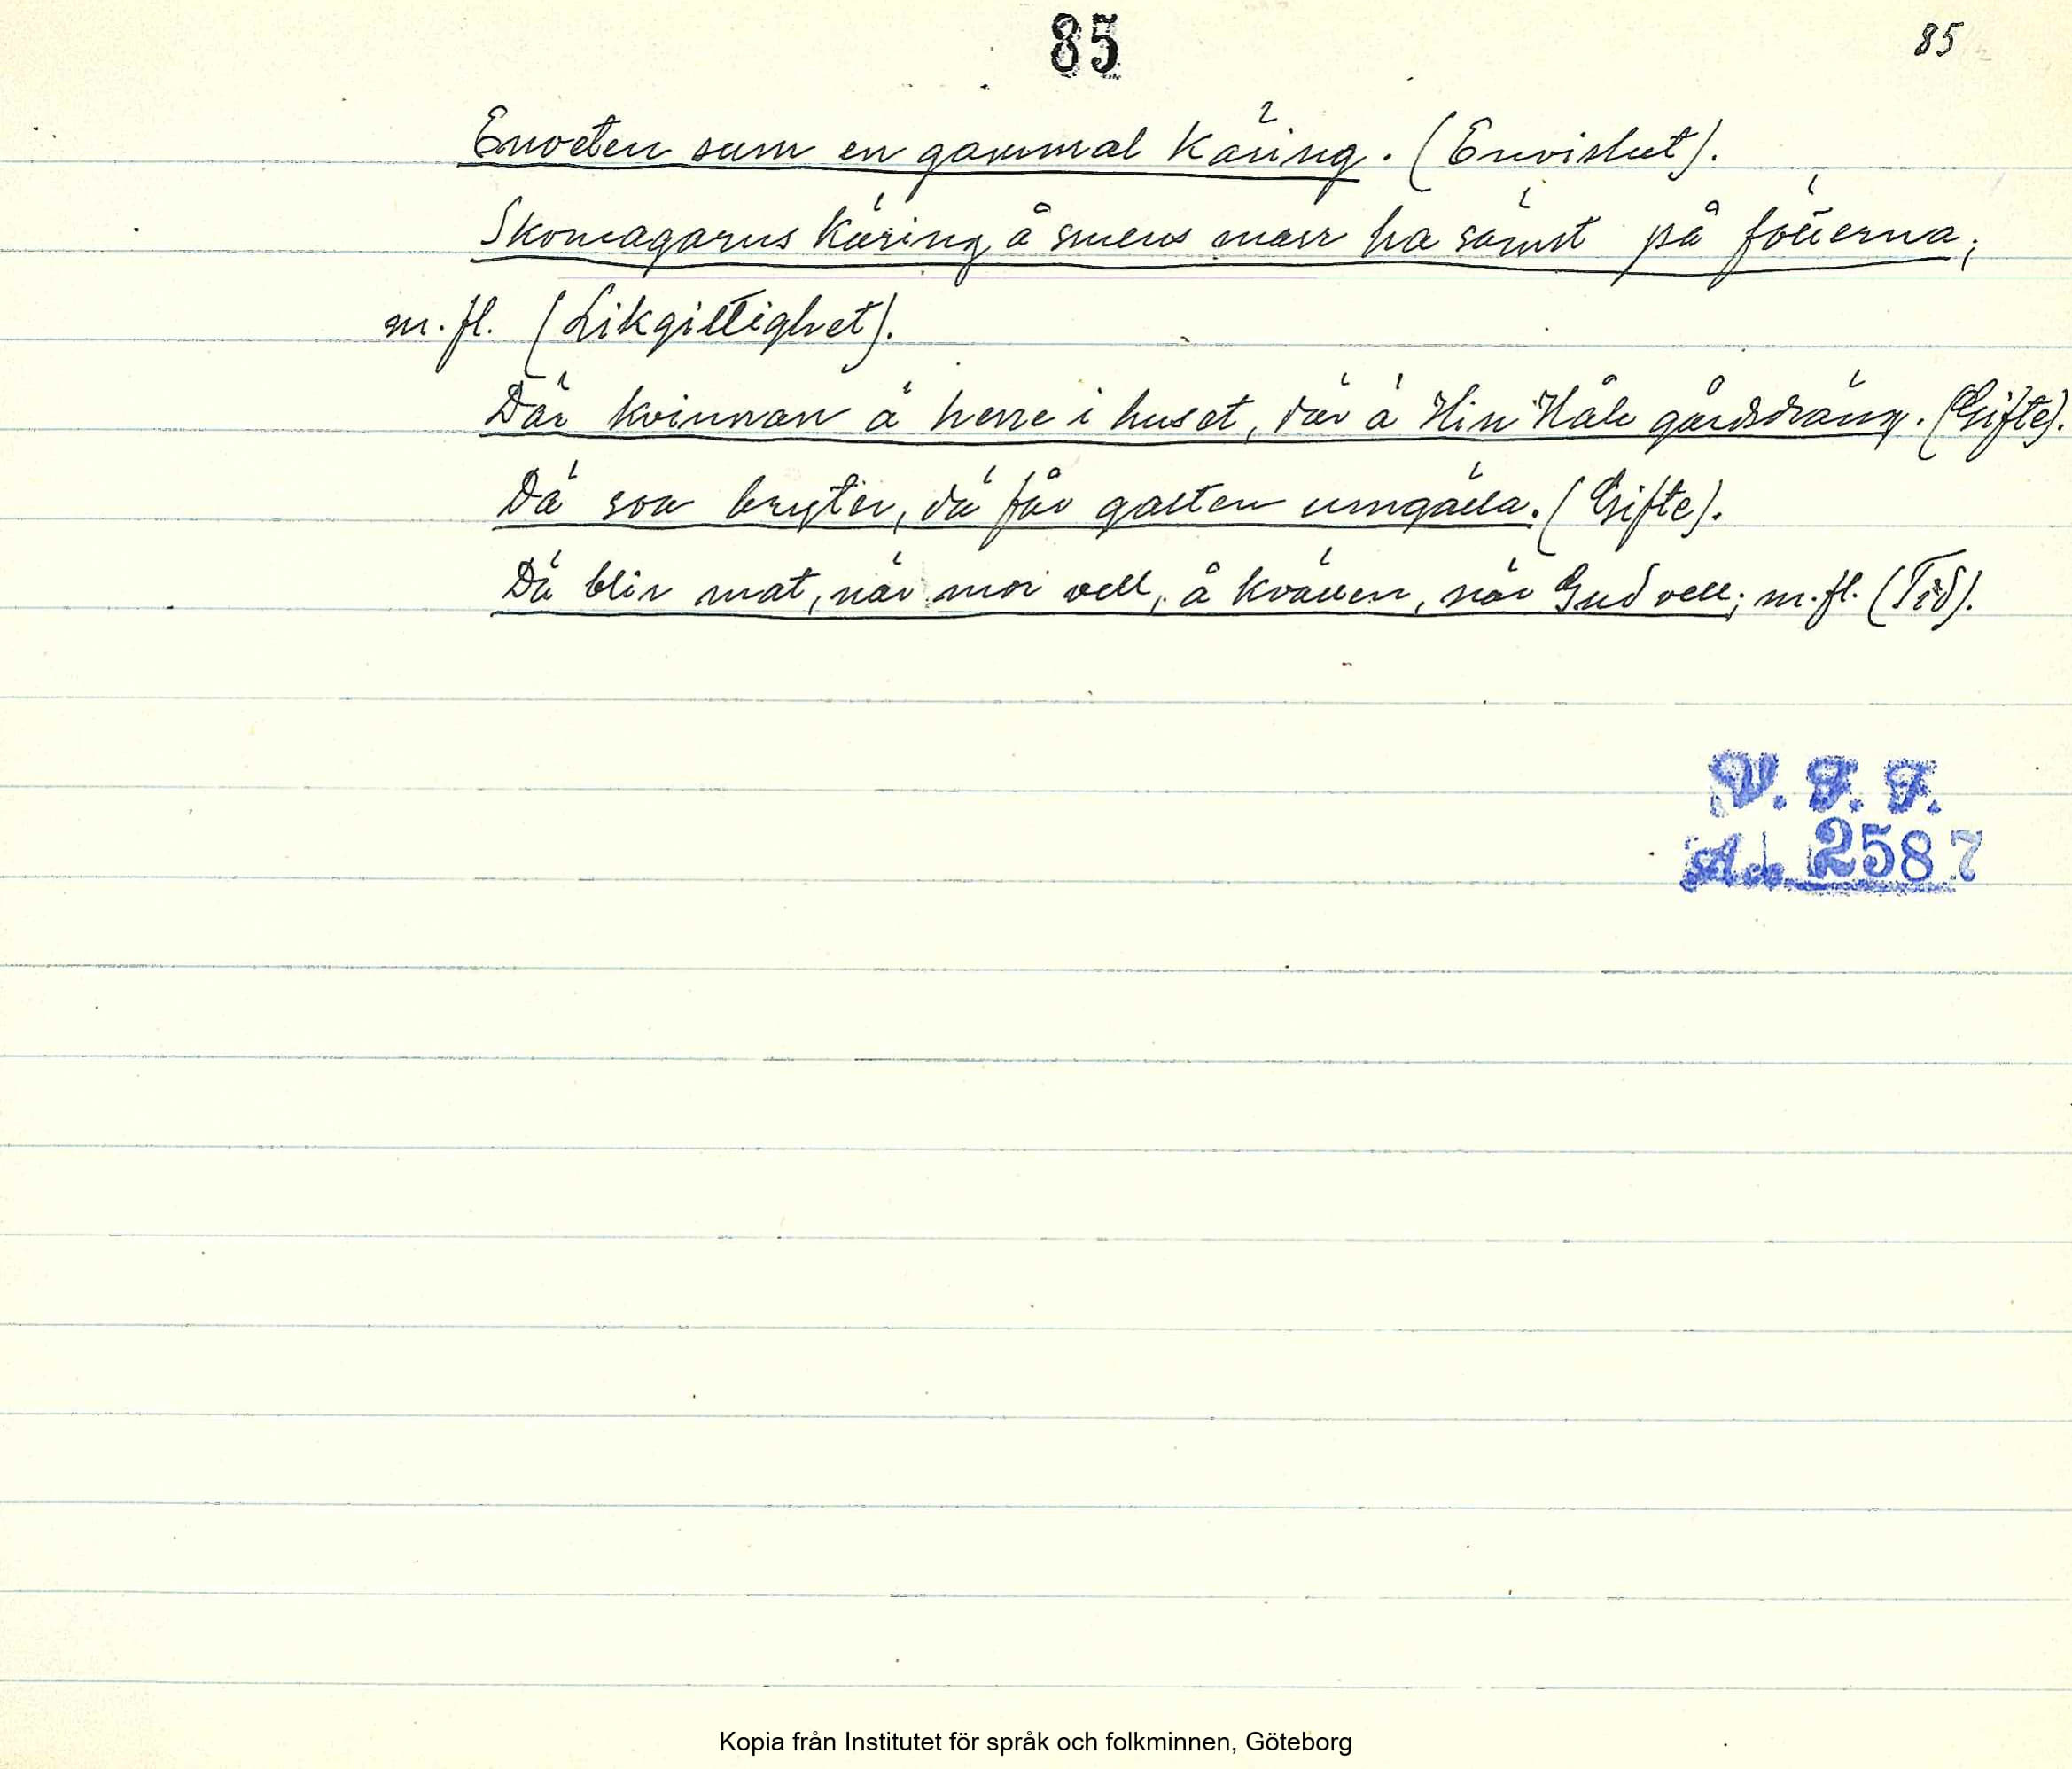 85
85
Enveten sum en gammal käring. (Envishet).
Skomagarns käring å smens marr ha sämst på fötterna;
m. fl. (Likgiltighet).
Där kvinnan ä herre i huset, där ä Hin Håle gårdsdräng. (Gifte).
Dä soa bryter, dä får galten umgälla. (Gifte).
Dä blir mat, när mor vell, å kvällen, när Gud vell; m. fl. (Tid).
V. F. F.
Acc. 2587
Kopia från Institutet för språk och folkminnen, Göteborg